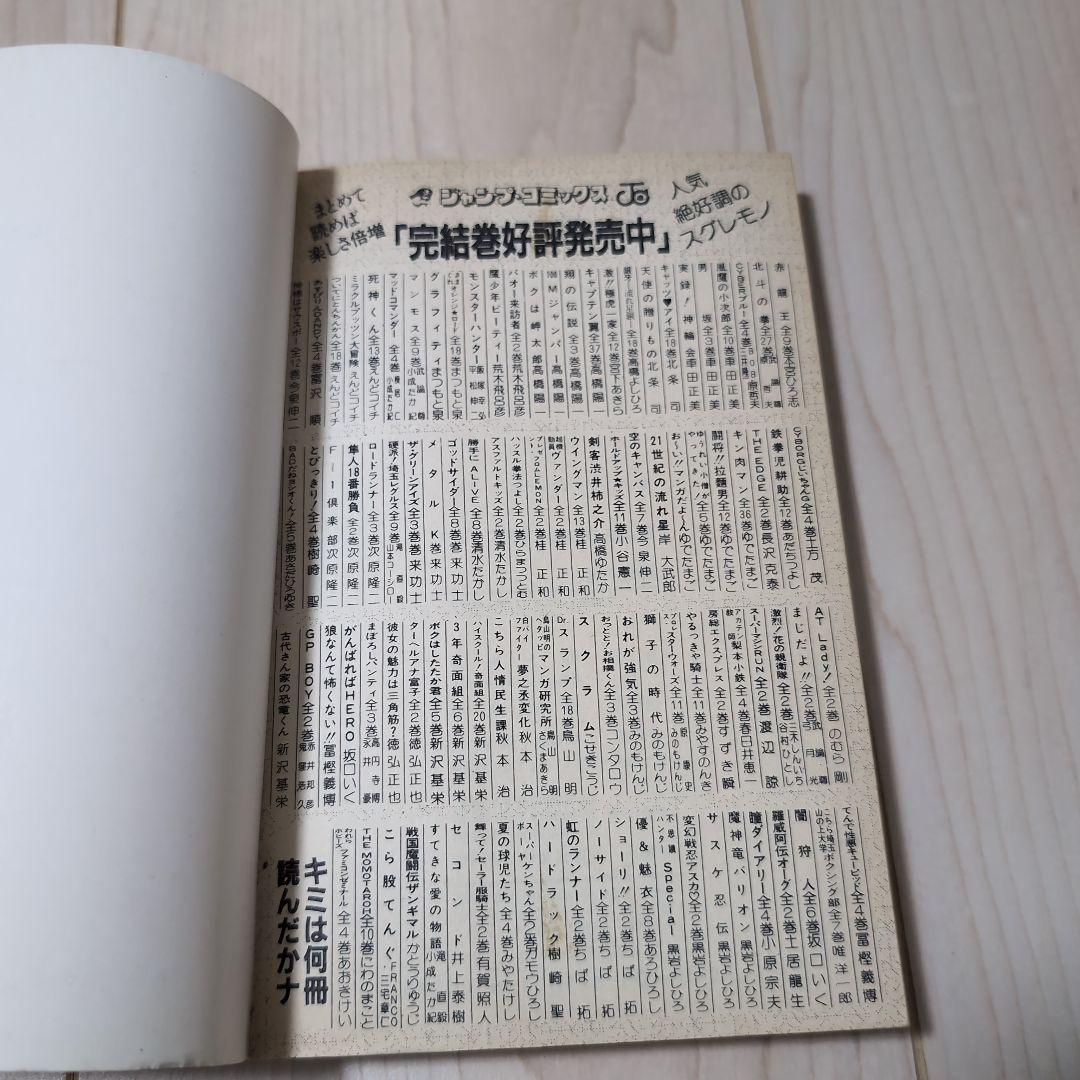 まとめて
読めば
楽しさ倍増
ジャンプ・コミックス
人気
絶好調の
スグレモノ
「完結巻好評発売中」
赤龍王 全9巻 本宮ひろ志
北斗の拳 全27巻 武論尊 原哲夫
CYBERブルー 全4巻 BOB 三井隆一 原哲夫
風魔の小次郎 全10巻 車田正美
男坂 全3巻 車田正美
実録!神輪会 車田正美
キャッツ♥アイ 全18巻 北条司
天使の贈りもの 北条司
銀牙―流れ星 銀― 全18巻 高橋よしひろ
激!!極虎一家 全12巻 宮下あきら
キャプテン翼 全37巻 高橋陽一
翔の伝説 全3巻 高橋陽一
100Mジャンパー 高橋陽一
ボクは岬太郎 高橋陽一
バオー来訪者 全2巻 荒木飛呂彦
魔少年ビーティー 荒木飛呂彦
モンスターハンター 飯塚幸弘 平松伸二
きまぐれオレンジ★ロード 全18巻 まつもと泉
グラフィティ まつもと泉
マンモス 全9巻 武論尊 小成たか紀
マッドコマンダー 全4巻 榎居仁 小成たか紀
死神くん 全13巻 えんどコイチ
ミラクルプッツン大冒険 えんどコイチ
ついでにとんちんかん 全18巻 えんどコイチ
あすぴりADANDY 全4巻 富沢順
神様はサウスポー 全12巻 今泉伸二
CYBORGじいちゃんG 全4巻 土方茂
鉄拳児耕助 全12巻 あだちつよし
THE EDGE 全2巻 長沢克泰
キン肉マン 全36巻 ゆでたまご
闘将!!拉麵男 全12巻 ゆでたまご
ゆうれい小僧がやってきた! 全5巻 ゆでたまご
お~い!!マンガだよ~ん ゆでたまご
21世紀の流れ星 岸大武郎
空のキャンバス 全7巻 今泉伸二
ホールドアップ★キッズ 全11巻 小谷憲一
剣客渋井柿之介 高橋ゆたか
ウイングマン 全13巻 桂正和
超機動員ヴァンダー 全2巻 桂正和
プレゼント・フロムLEMON 全2巻 桂正和
ハッスル拳法つよし 全2巻 ひらまつつとむ
アスファルトキッズ 全2巻 清水たかし
勝手にALIVE 全8巻 清水たかし
ゴッドサイダー 全8巻 巻来功士
ザ・グリーンアイズ 全3巻 巻来功士
メタルK 巻来功士
硬派!埼玉レグルス 全9巻 滝直毅 山本コーシロー
ロードランナー 全3巻 次原隆二
隼人18番勝負 全2巻 次原隆二
F―1倶楽部 次原隆二
とびっきり! 全4巻 樹崎聖
BADだねヨシオくん! 全5巻 あさだひろゆき
AT Lady! 全2巻 のむら剛
まじだよ!! 全2巻 武論尊 弓月光
激烈!花の親衛隊 全2巻 三木しんいち 谷村ひとし
スーパーマンRUN 全2巻 渡辺諒
アカテン教師梨本小鉄 全4巻 春日井恵一
房総エクスプレス 全2巻 すずき瞬
やるっきゃ騎士 全11巻 みやすのんき
プロレス・スターウォーズ 全11巻 原康史 みのもけんじ
獅子の時代 みのもけんじ
おれが強気 全3巻 みのもけんじ
おっとと!お相撲くん 全3巻 コンタロウ
スクラム こせきこうじ
Dr.スランプ 全18巻 鳥山明
鳥山明のヘタッピマンガ研究所 鳥山明 さくまあきら
白バイファイター 夢之丞変化 秋本治
こちら人情民生課 秋本治
ハイスクール!奇面組 全20巻 新沢基栄
3年奇面組 全6巻 新沢基栄
ボクはしたたか君 全5巻 新沢基栄
ターヘルアナ富子 全2巻 徳弘正也
彼女の魅力は三角筋? 徳弘正也
まぼろしパンティ 全3巻 高円寺博 永井豪
がんばればHERO 坂口いく
狼なんて怖くない!! 冨樫義博
GP BOY 全2巻 赤井邦彦 鬼窪浩久
古代さん家の恐竜くん 新沢基栄
てんで性悪キューピッド 全4巻 冨樫義博
こちら埼玉山の上大学ボクシング部 全7巻 唯洋一郎
闇狩人 全6巻 坂口いく
羅威阿伝オーグ 全2巻 土居龍生
瞳ダイアリー 全4巻 小原宗夫
魔神竜バリオン 黒岩よしひろ
サスケ忍伝 黒岩よしひろ
変幻戦忍アスカ♡ 全2巻 黒岩よしひろ
不思議ハンターSpecial 黒岩よしひろ
優&魅衣 全8巻 あろひろし
ショーリ!! 全2巻 ちば拓
ノーサイド 全2巻 ちば拓
虹のランナー 全2巻 ちば拓
ハードラック 樹崎聖
スーパーボーイケンちゃん 全2巻 ガモウひろし
夏の球児たち 全4巻 みやたけし
舞って!セーラー服騎士 全2巻 有賀照人
セコンド 井上泰樹
すてきな愛の物語 滝直毅 小成たか紀
戦国魔闘伝ザンギマル かとうりゅうじ
こら殴てんぐ FRANCO 三宅章仁
THE MOMOTAROH 全10巻 にわのまこと
われらホビーズ ファミコンゼミナール 全4巻 あおきけい
キミは何冊
読んだかナ